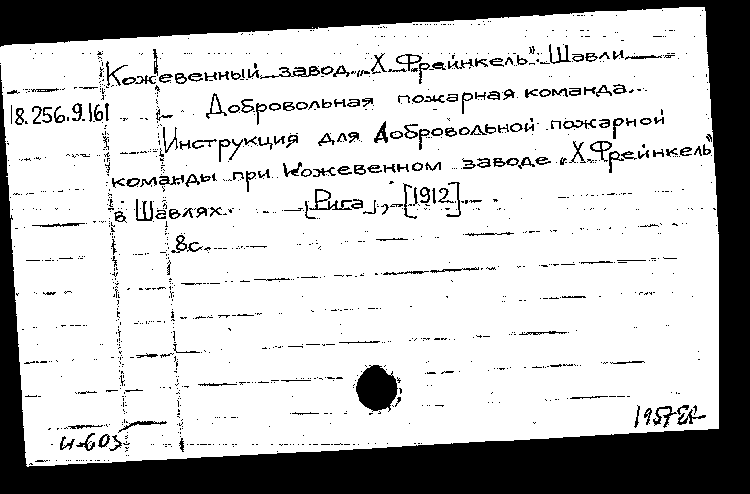 Кожевенный завод „Х. Фрейнкель". Шавли
18.256.9.161 Добровольная пожарная команда.
Инструкция для Добровольной пожарной
команды при Кожевенном заводе „Х. Фрейнкель"
в Шавлях. [Рига], [1912].
8с.
И-603